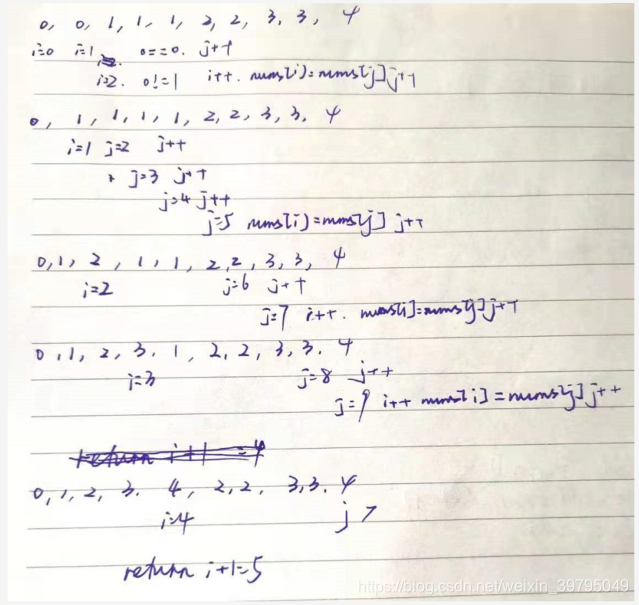 0, 0, 1, 1, 1, 2, 2, 3, 3, 4
i=0 i=1 0==0. j++
i=2. 0!=1 i++. nums[i]=nums[j] j++
0, 1, 1, 1, 1, 2, 2, 3, 3, 4
i=1 j=2 j++
j=3 j++
j=4 j++
j=5 nums[i]=nums[j] j++
0, 1, 2, 1, 1, 2, 2, 3, 3, 4
i=2 j=6 j++
j=7 i++. nums[i]=nums[j] j++
0, 1, 2, 3, 1, 2, 2, 3, 3. 4
i=3 j=8 j++
j=9 i++ nums[i]=nums[j] j++
return i+1 =4
0, 1, 2, 3. 4, 2, 2, 3, 3. 4
i=4 j 7
return i+1=5
https://blog.csdn.net/weixin_39795049